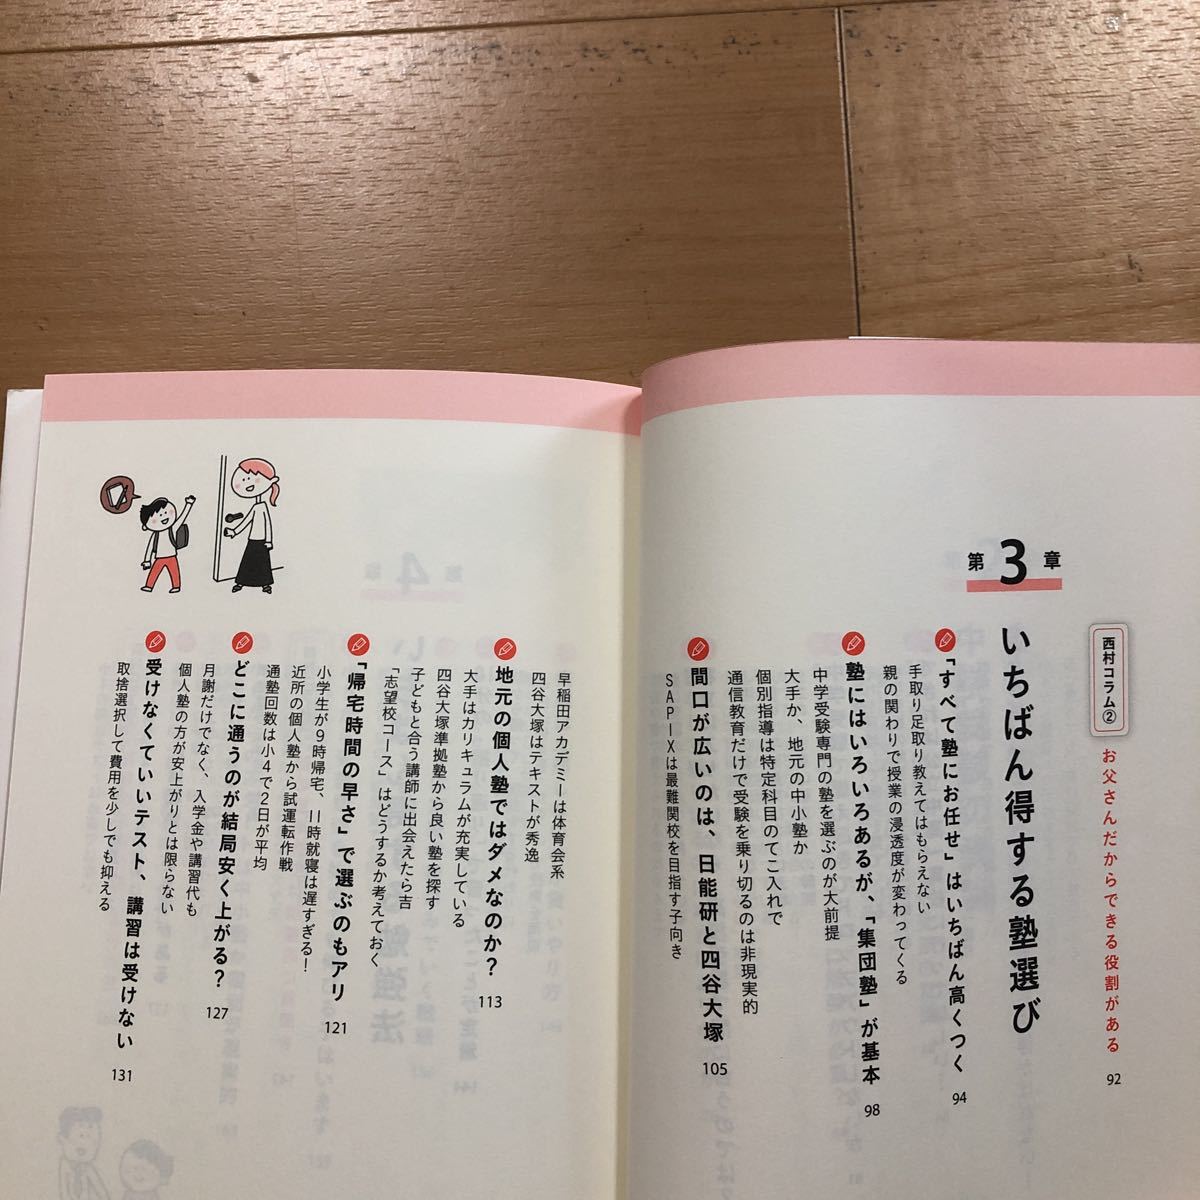 西村コラム②
お父さんだからできる役割がある
92
第3章
いちばん得する塾選び
「すべて塾にお任せ」はいちばん高くつく
94
手取り足取り教えてはもらえない
親の関わりで授業の浸透度が変わってくる
塾にはいろいろあるが、「集団塾」が基本
98
中学受験専門の塾を選ぶのが大前提
大手か、地元の中小塾か
個別指導は特定科目のてこ入れで
通信教育だけで受験を乗り切るのは非現実的
間口が広いのは、日能研と四谷大塚
105
SAPIXは最難関校を目指す子向き
早稲田アカデミーは体育会系
四谷大塚はテキストが秀逸
地元の個人塾ではダメなのか?
113
大手はカリキュラムが充実している
四谷大塚準拠塾から良い塾を探す
子どもと合う講師に出会えたら吉
「志望校コース」はどうするか考えておく
「帰宅時間の早さ」で選ぶのもアリ
121
小学生が9時帰宅、11時就寝は遅すぎる!
近所の個人塾から試運転作戦
通塾回数は小4で2日が平均
どこに通うのが結局安く上がる?
127
月謝だけでなく、入学金や講習代も
個人塾の方が安上がりとは限らない
受けなくていいテスト、講習は受けない
131
取捨選択して費用を少しでも抑える